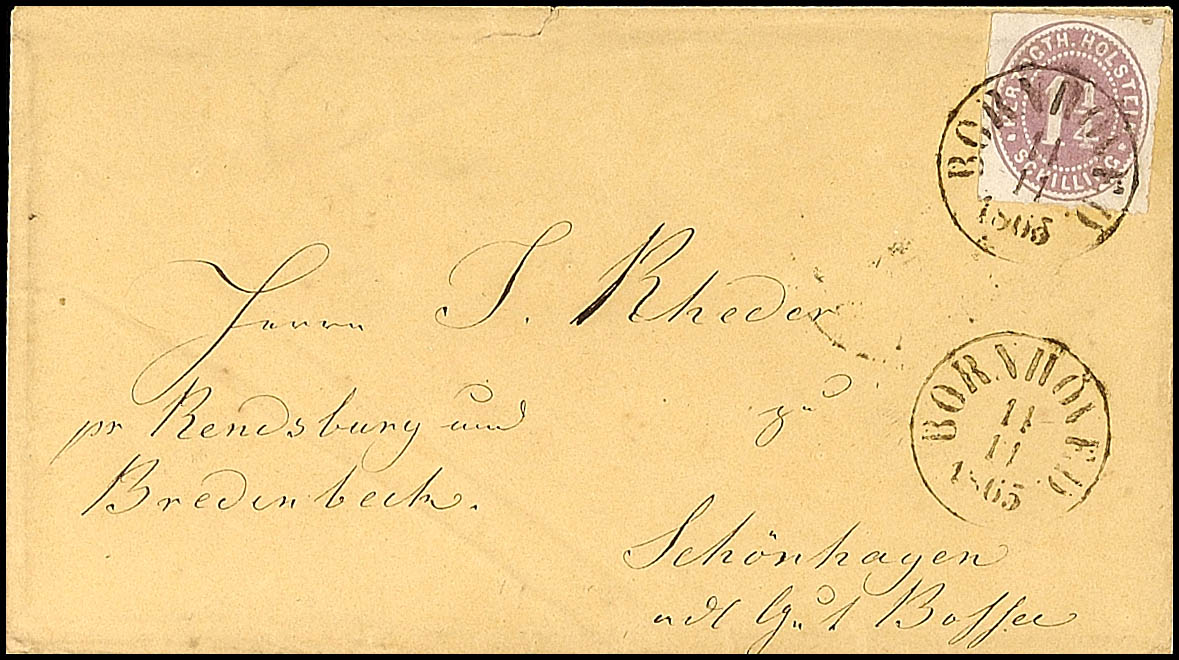 HERZOGTH. HOLSTEIN
1¼
SCHILLING
BORNHÖVED
11
11
1865
Herrn J. Rheder
BORNHÖVED
11
11
1865
zu
pr Rendsburg und
Bredenbeck.
Schönhagen
adl Gut Bossee